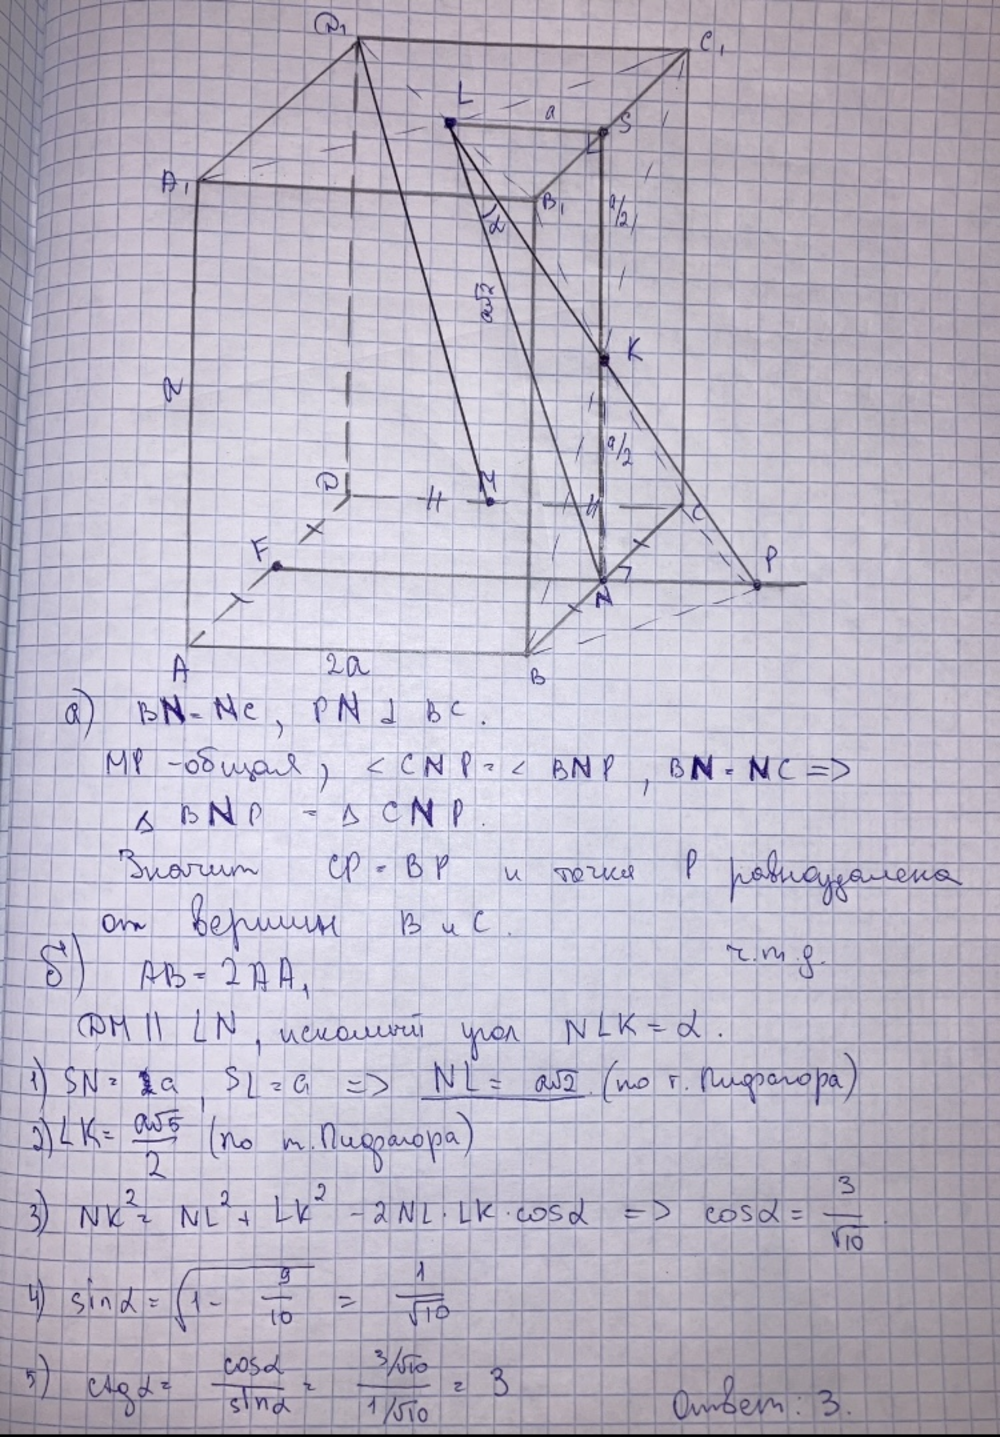 D₁
C₁
L
a
S
A₁
B₁
a/2
α
a√2
K
a
a/2
D
M
C
F
P
N
A
2a
B
а) BN = NC, PN ⊥ BC.
MP - общая, < CNP = < BNP, BN = NC =>
Δ BNP = Δ CNP.
Значит CP = BP и точка P равноудалена
от вершин B и C.
ч.т.д.
б) AB = 2AA₁
DM || LN, искомый угол NLK = α.
1) SN = a, SL = a => NL = a√2 (по т. Пифагора)
2) LK = a√5/2 (по т. Пифагора)
3) NK² = NL² + LK² - 2NL·LK·cosα => cosα = 3/√10.
4) sinα = √(1 - 9/10) = 1/√10
5) ctgα = cosα/sinα = (3/√10)/(1/√10) = 3
Ответ: 3.